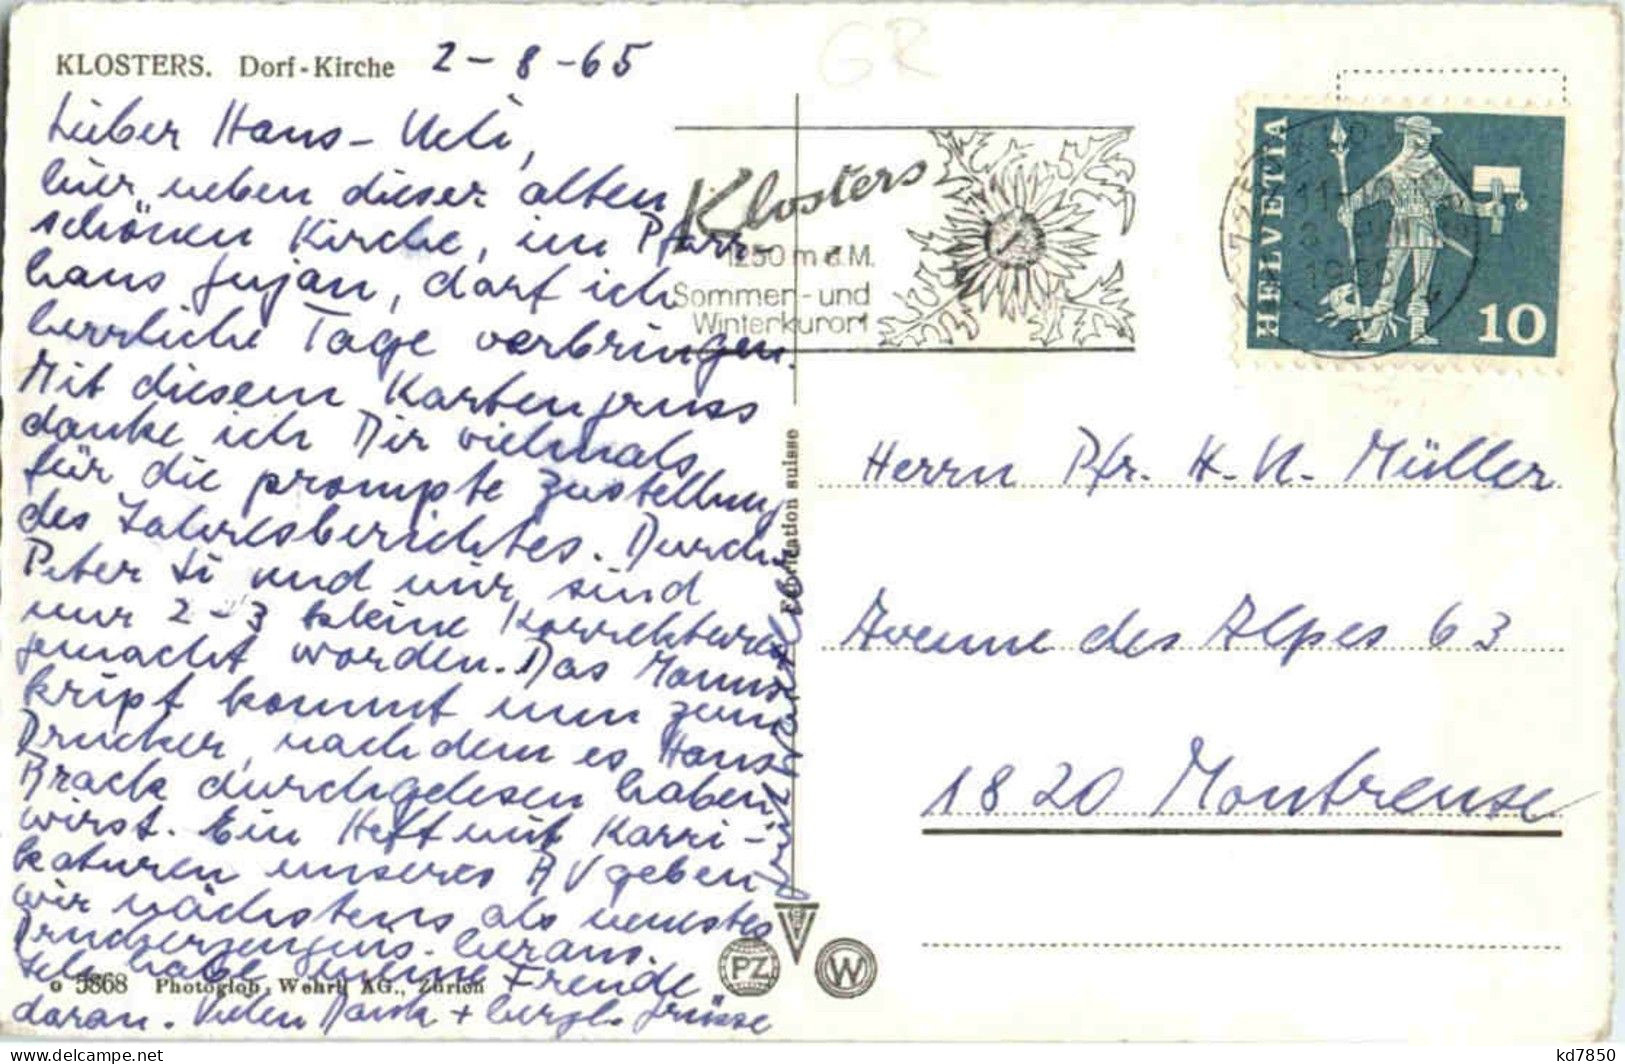 KLOSTERS. Dorf-Kirche 2-8-65
GR
Lieber Hans-Ueli,
hier neben dieser alten
schönen Kirche, im Pfarr-
haus Jujan, darf ich
herrliche Tage verbringen.
Mit diesem Kartengruss
danke ich Dir vielmals
für die prompte Zustellung
des Jahresberichtes. Durch
Peter Li und mir sind
nur 2-3 kleine Korrekturen
gemacht worden. Das Manus-
kript kommt nun zum
Drucker, nachdem es Hans
Brack durchgelesen haben
wird. Ein Heft mit Karri-
katuren unseres BV geben
wir nächstens als neustes
Druckerzeugnis heraus.
Ich habe meine Freude
daran. Vielen Dank + bergl. Grüsse
Klosters
1250 m ü. M.
Sommer- und
Winterkurort
HELVETIA
10
Fabrication suisse
Herrn Pfr. H.U. Müller
Avenue des Alpes 63
1820 Montreuse
5868 Photoglob-Wehrli AG., Zürich
PZ
W
https://www.delcampe.net
kd7850